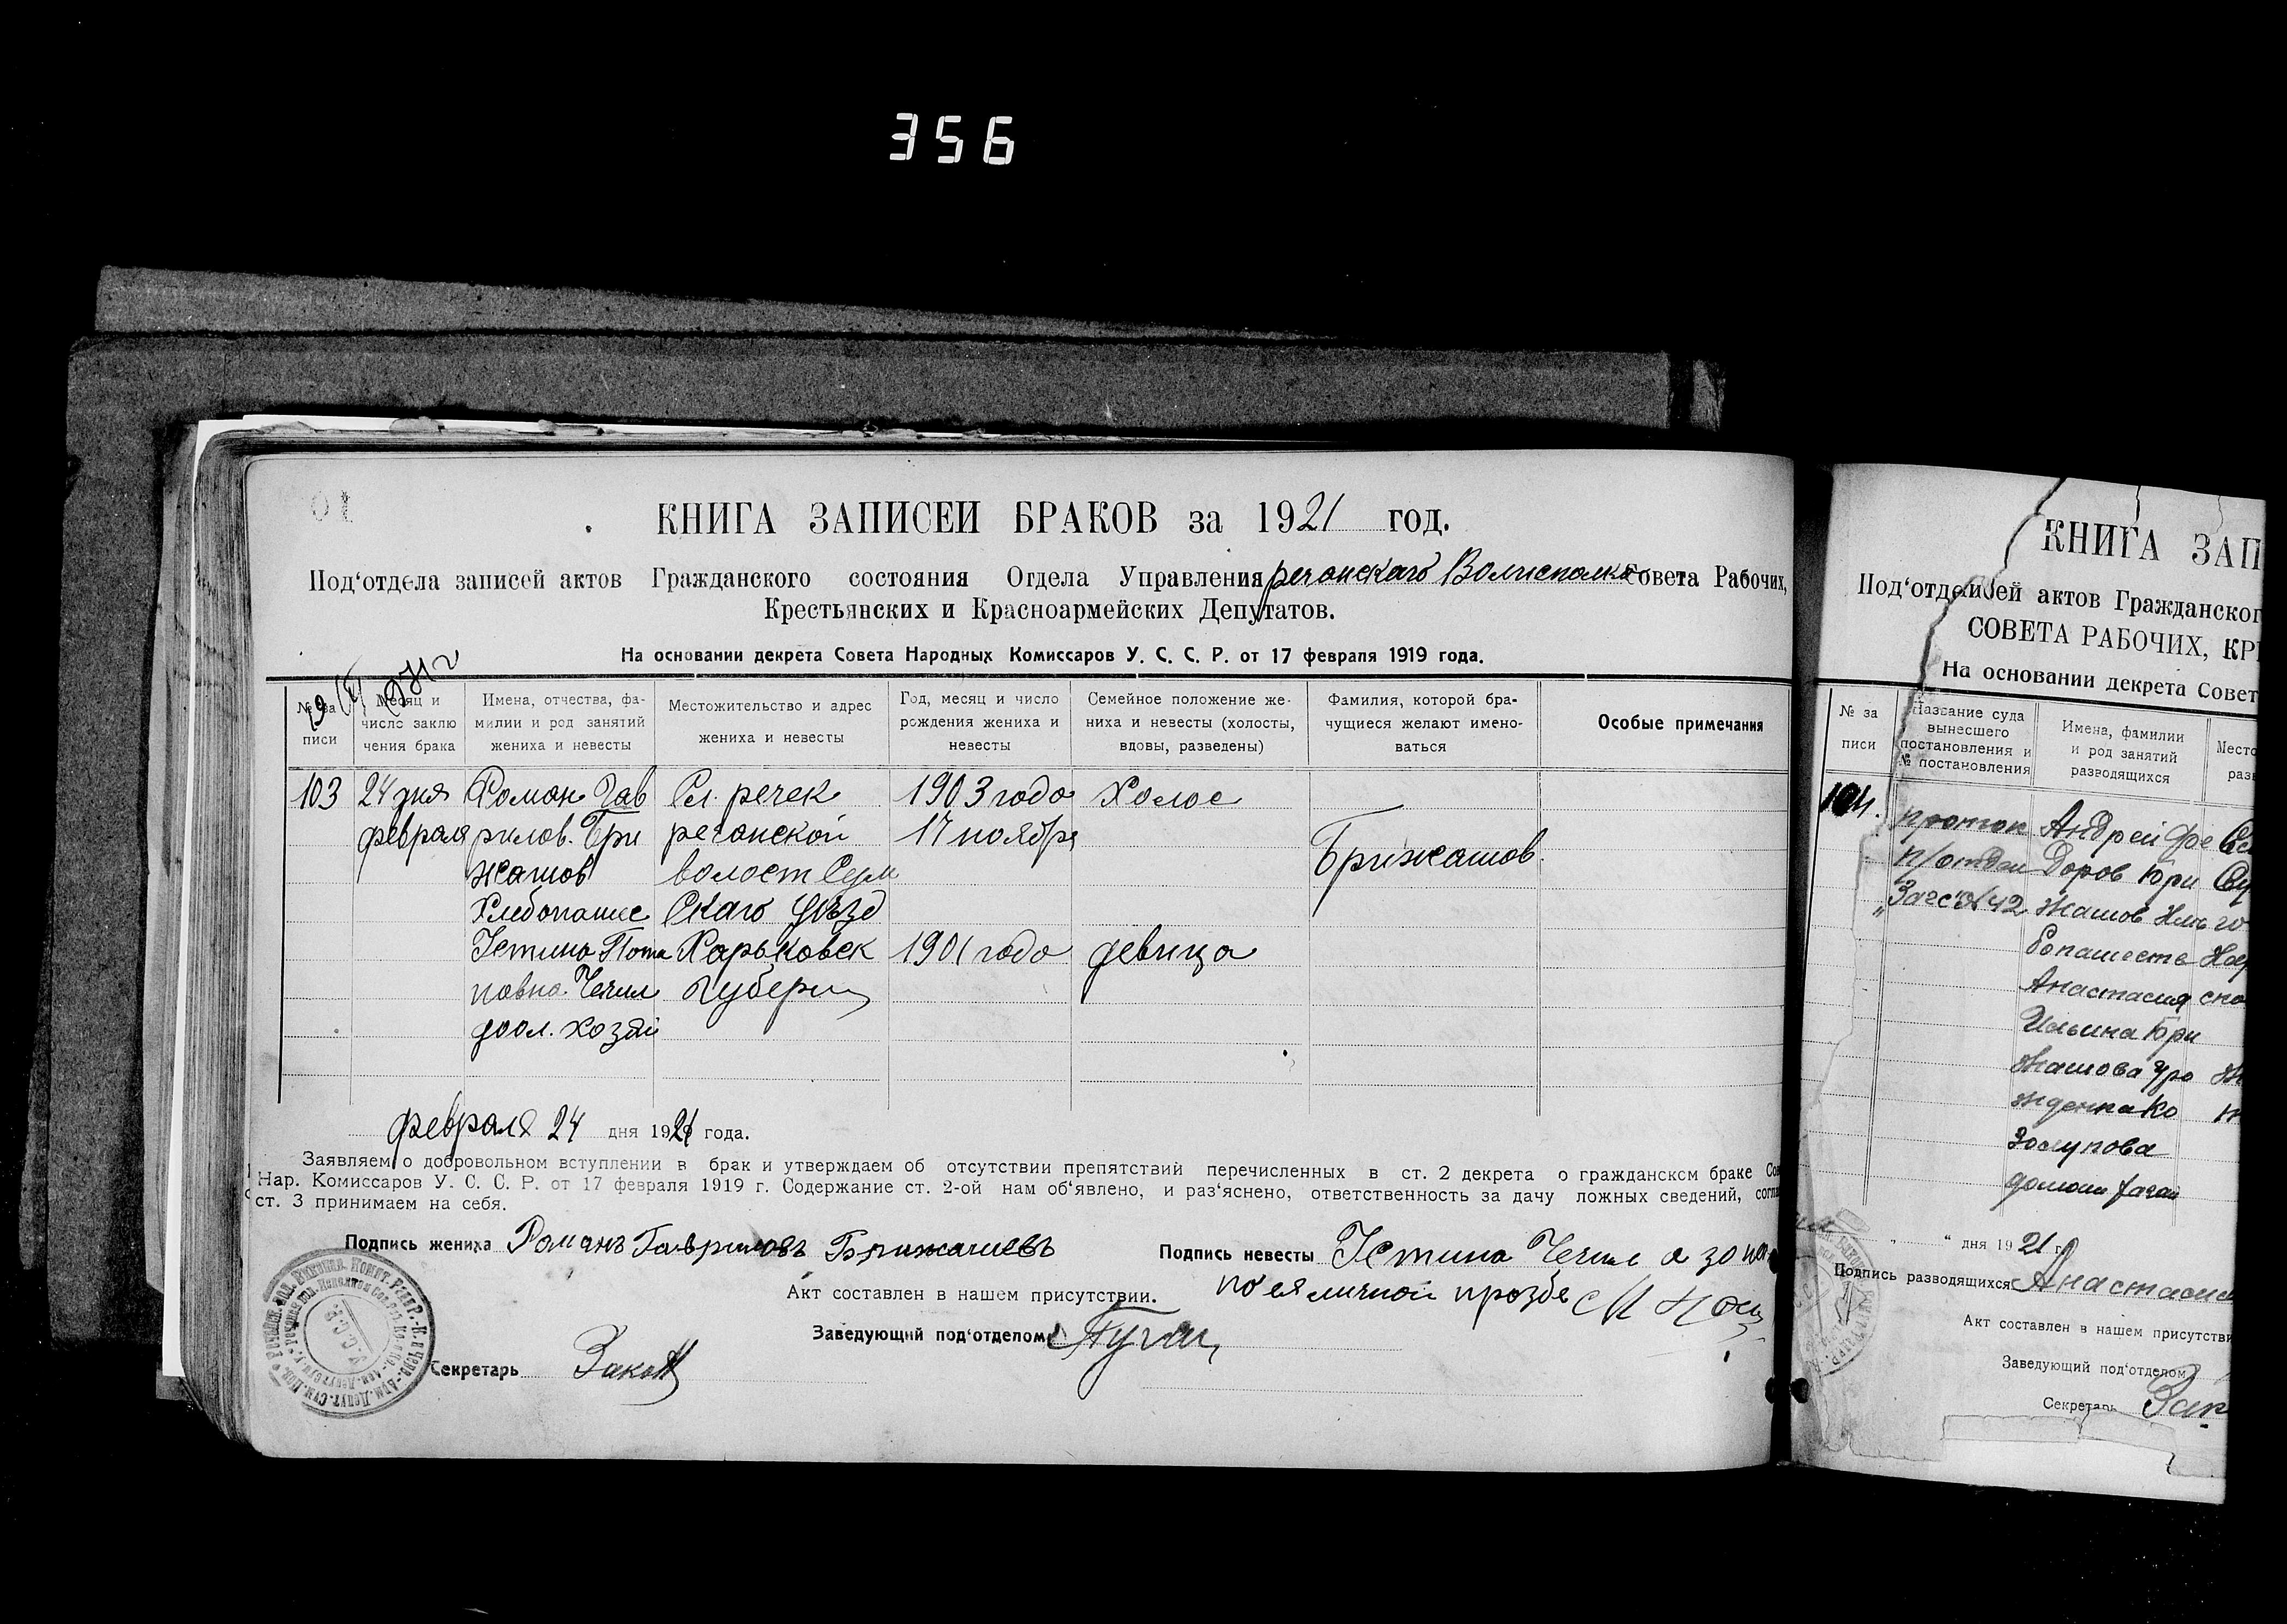 356
01
КНИГА ЗАПИСЕИ БРАКОВ за 1921 год.
Под'отдела записей актов Гражданского состояния Отдела Управления речанскаго Волисполка Совета Рабочих,
Крестьянских и Красноармейских Депутатов.
На основании декрета Совета Народных Комиссаров У. С. С. Р. от 17 февраля 1919 года.
№ за писи
Месяц и число заклю чения брака
Имена, отчества, фа- милии и род занятий жениха и невесты
Местожительство и адрес жениха и невесты
Год, месяц и число рождения жениха и невесты
Семейное положение же- ниха и невесты (холосты, вдовы, разведены)
Фамилия, которой бра- чущиеся желают имено- ваться
Особые примечания
103 24 дня Роман Гав Сл. речек 1903 года Холос
февраля рилов. Бри речанской 17 ноября
жашов волост Сум Брижашов.
Хлебопашес Скаго уезд
Устина Пота Харьковск 1901 года девица
повна Чечил Губерн
дом. хозяй
февраля 24 дня 1921 года.
Заявляем о добровольном вступлении в брак и утверждаем об отсутствии препятствий перечисленных в ст. 2 декрета о гражданском браке
Нар. Комиссаров У. С. С. Р. от 17 февраля 1919 г. Содержание ст. 2-ой нам об'явлено, и раз'яснено, ответственность за дачу ложных сведений,
ст. 3 принимаем на себя.
Подпись жениха Романъ Гавриловъ Брижашевъ
Подпись невесты Устина Чечил а за
по ея личной прозбе
Акт составлен в нашем присутствии.
Заведующий под'отделом
Секретарь
КНИГА ЗАП
Под'отдел сей актов Гражданског
СОВЕТА РАБОЧИХ, КР
На основании декрета Совет
№ за писи
Название суда вынесшего постановления и № постановления
Имена, фамилии и род занятий разводящихся
Место
104. проток Андрей Фе
п/отдел доров Бри
Загса №42 жашов Хле
бопашеств
Анастасия
Ильина Бри
жашова уро
жденна Ко
" дня 1921 г.
Подпись разводящихся Анастасия
Акт составлен в нашем присутстви
Заведующий под'отделом
Секретарь Зак